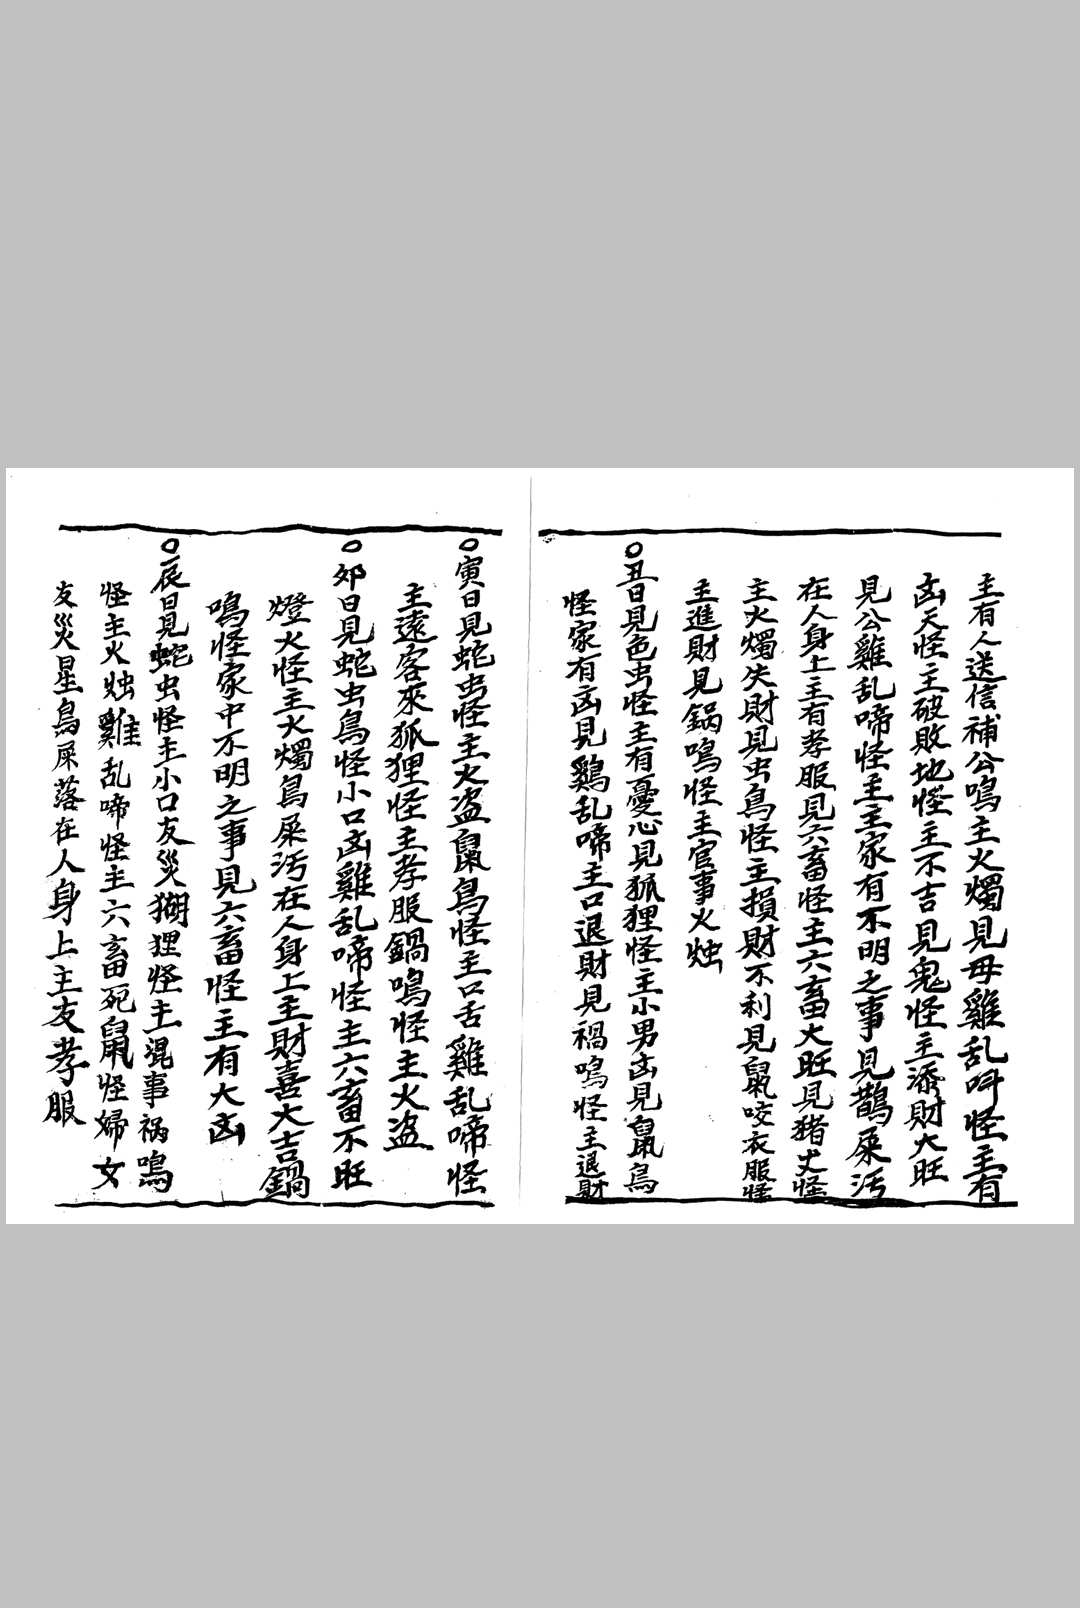 主有人送信補公鳴主火燭見母雞乱呌怪主有
凶天怪主破敗地怪主不吉見鬼怪主添財大旺
見公雞乱啼怪主主家有不明之事見鵲屎污
在人身上主有孝服見六畜怪主六畜大旺見猪犬怪
主火燭失財見虫鳥怪主損財不利見鼠咬衣服怪
主進財見鍋鳴怪主官事火烛
〇丑日見色虫怪主有憂心見狐狸怪主小男凶見鼠鳥
怪家有凶見鷄乱啼主口退財見禍鳴怪主退財
〇寅日見蛇虫怪主火盗鼠鳥怪主口舌雞乱啼怪
主遠客來狐狸怪主孝服鍋鳴怪主火盗
〇卯日見蛇虫鳥怪小口凶雞乱啼怪主六畜不旺
燈火怪主火燭鳥屎污在人身上主財喜大吉鍋
鳴怪家中不明之事見六畜怪主有大凶
〇辰日見蛇虫怪主小口友災猢狸怪主混事祸鳴
怪主火烛雞乱啼怪主六畜死鼠怪婦女
友災星鳥屎落在人身上主友孝服